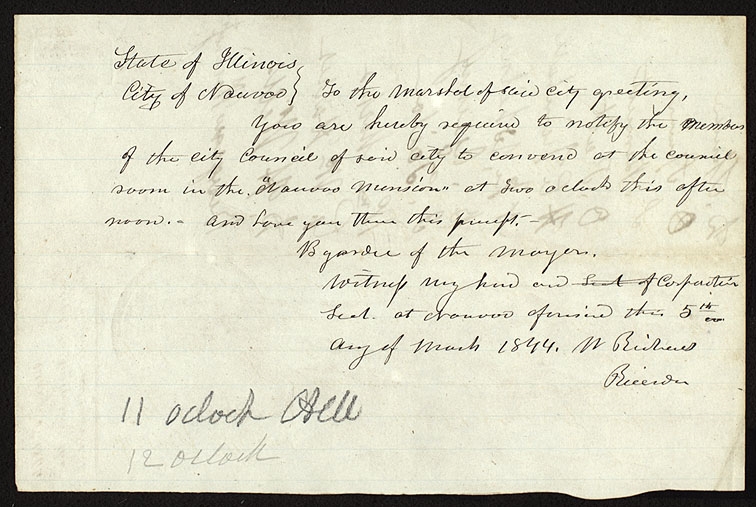 State of Illinois
City of Nauvoo } To the Marshal of said city greeting,
You are hereby required to notify the members
of the city council of said city to convene at the council
room in the "Nauvoo Mansion" at two oclock this after
noon. - and have you then this precept. -
By order of the Mayor.
Witness my hand and Seal of Corporation
Seal. at Nauvoo aforesaid this 5th
day of March 1844. W Richards
Recorder
11 oclock
12 oclock